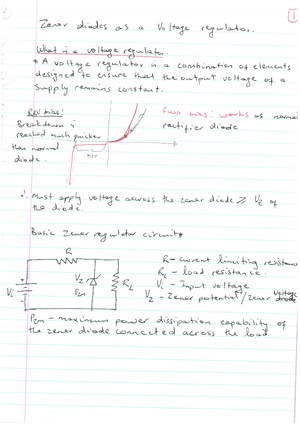 1
Zener diodes as a Voltage regulator.
What is a voltage regulator.
* A voltage regulator is a combination of elements
designed to ensure that the output voltage of a
supply remains constant.
Rev bias:
Breakdown is
reached much quicker
than normal
diode.
OFF
Fwd bias: works as normal
rectifier diode
∴ must apply voltage across the zener diode ≥ Vz of
the diode.
Basic Zener regulator circuit
R
Vi
Vz
Pzm
RL
R - current limiting resistance
RL - load resistance.
Vi - Input voltage
Vz - Zener potential/zener voltage
Pzm - maximum power dissipation capability of
the zener diode connected across the load